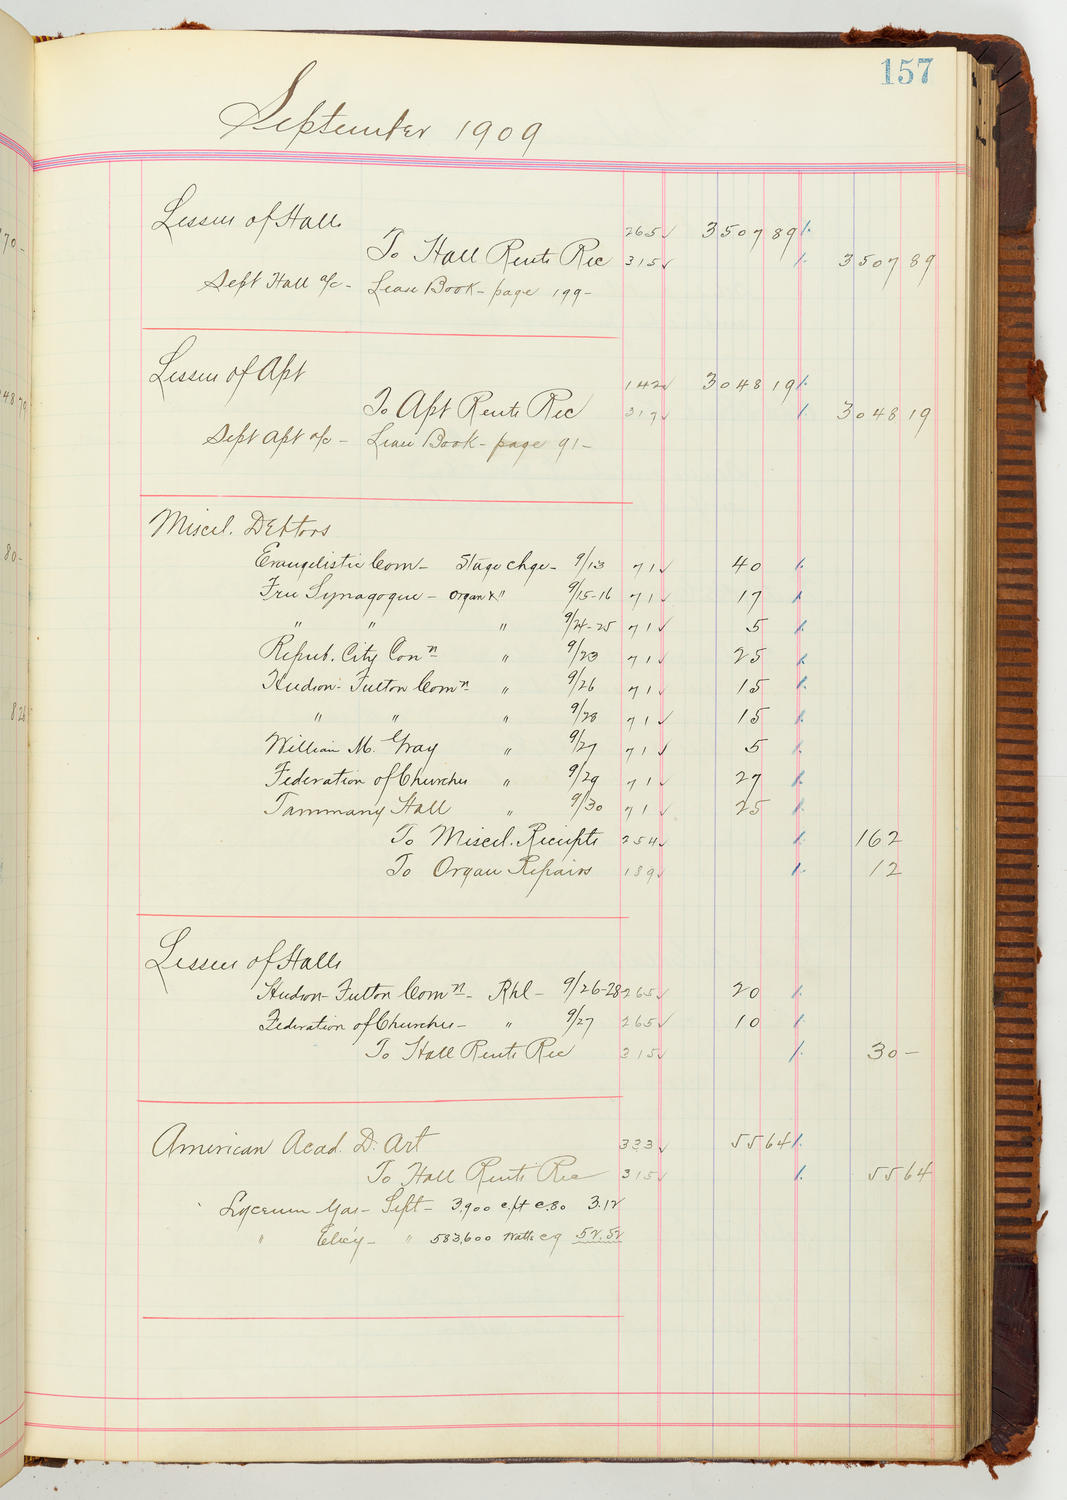 157
September 1909
Lessees of Halls 265✓ 3507 89
To Hall Rents Rec 315✓ 3507 89
Sept Hall a/c - Lease Book - page 199 -
Lessees of Apt 142✓ 3048 19
To Apt Rents Rec 317✓ 3048 19
Sept Apt a/c - Lease Book - page 91 -
Miscel. Debtors
Evangelistic Com - Stage chge - 9/13 71✓ 40
Free Synagogue - Organ & " 9/15-16 71✓ 17
" " " 9/24-25 71✓ 5
Repub. City Conn " 9/23 71✓ 25
Hudson-Fulton Comn " 9/26 71✓ 15
" " " 9/28 71✓ 15
William M. Gray " 9/27 71✓ 5
Federation of Churches " 9/29 71✓ 27
Tammany Hall " 9/30 71✓ 25
To Miscel. Receipts 254✓ 162
To Organ Repairs 189✓ 12
Lessees of Halls
Hudson-Fulton Comn - Rhl - 9/26-28 265✓ 20
Federation of Churches - " 9/27 265✓ 10
To Hall Rents Rec 315✓ 30 -
American Acad. D. Art 333✓ 55 64
To Hall Rents Rec 315✓ 55 64
Lyceum Gas - Sept - 3,900 c/ft c.80 3.12
" Elec'y - " 583,600 Watts c9 52.52
70 -
48 79
80 -
826